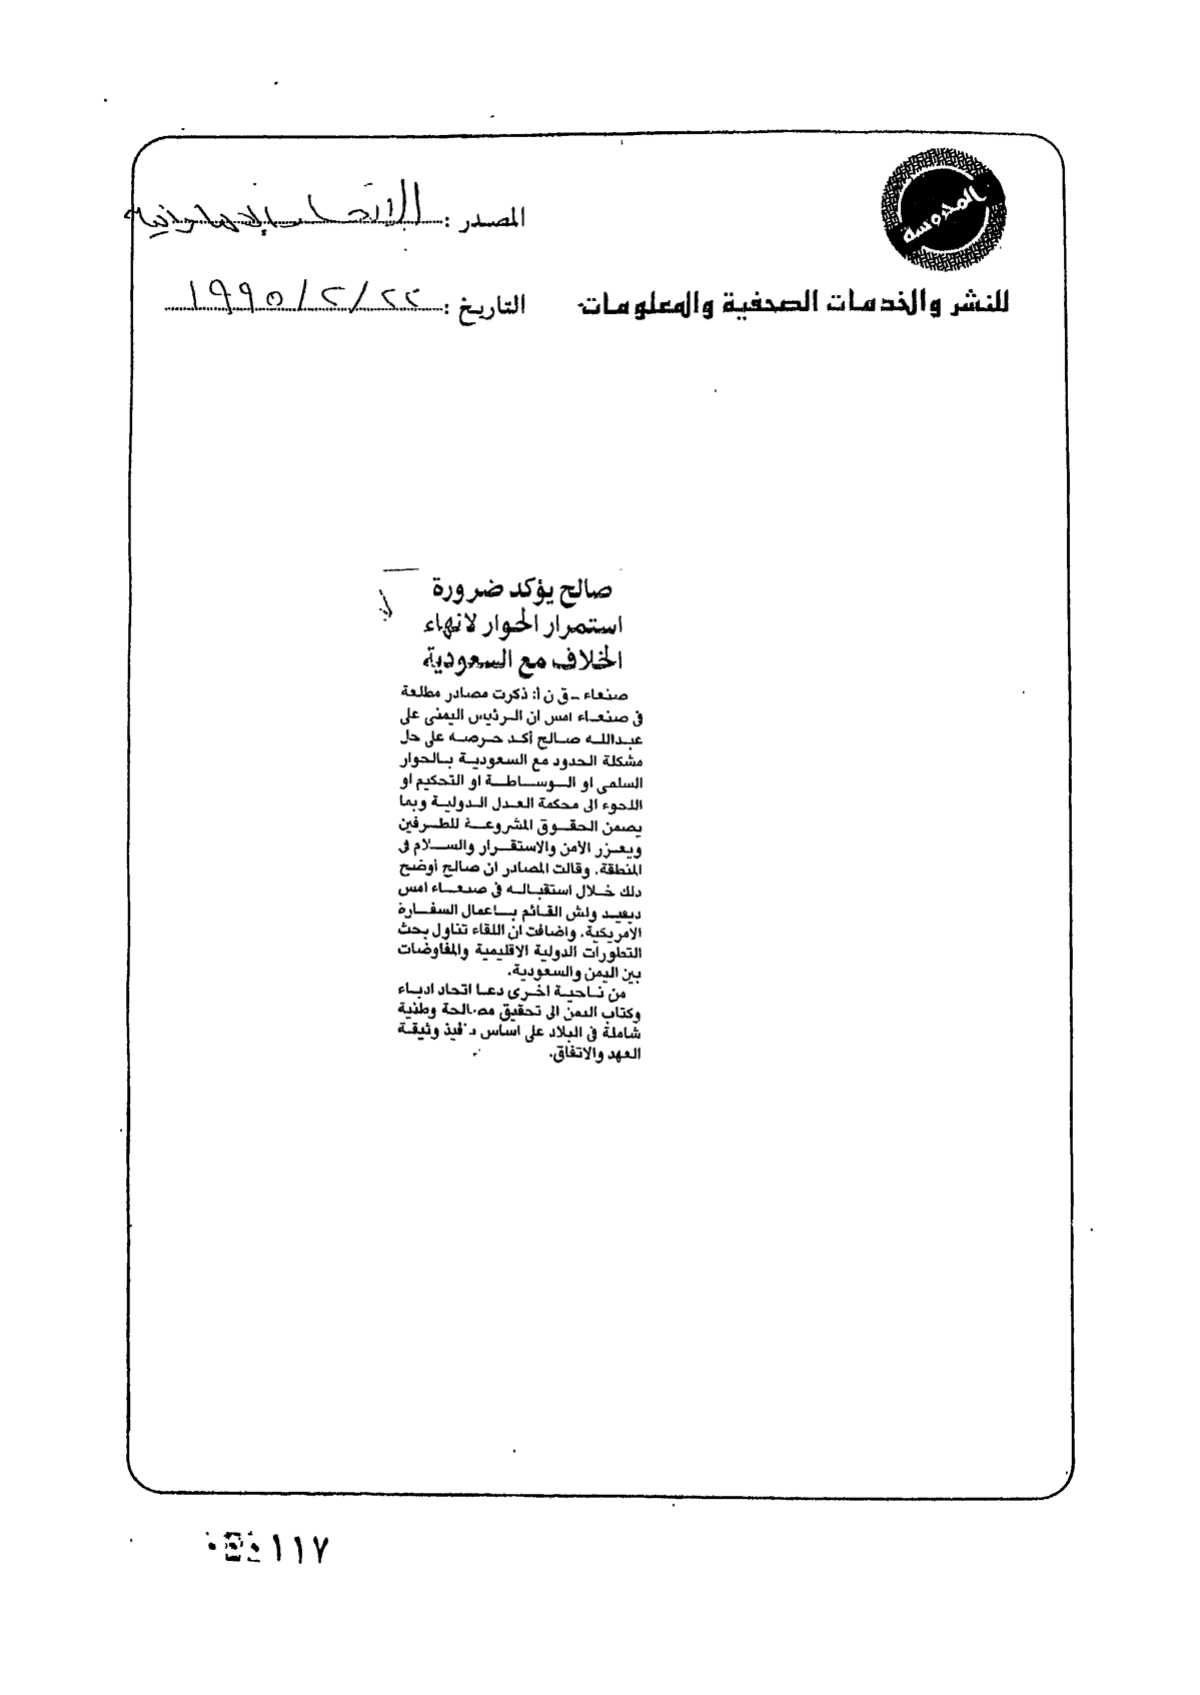 المحروسة
المصدر : الاتحاد
للنشر والخدمات الصحفية والمعلومات
التاريخ : ٢٢/٢/١٩٩٥
صالح يؤكد ضرورة
استمرار الحوار لانهاء
الخلاف مع السعودية
صنعاء - ق ن أ: ذكرت مصادر مطلعة
فى صنعاء امس ان الرئيس اليمنى على
عبدالله صالح أكد حرصه على حل
مشكلة الحدود مع السعودية بالحوار
السلمى او الوساطة او التحكيم او
اللجوء الى محكمة العدل الدولية وبما
يضمن الحقوق المشروعة للطرفين
ويعزز الأمن والاستقرار والسلام فى
المنطقة. وقالت المصادر ان صالح أوضح
ذلك خلال استقباله فى صنعاء امس
ديفيد ولش القائم باعمال السفارة
الأمريكية. واضافت ان اللقاء تناول بحث
التطورات الدولية الاقليمية والمفاوضات
بين اليمن والسعودية.
من ناحية اخرى دعا اتحاد ادباء
وكتاب اليمن الى تحقيق مصالحة وطنية
شاملة فى البلاد على اساس وثيقة
العهد والاتفاق.
١١٧